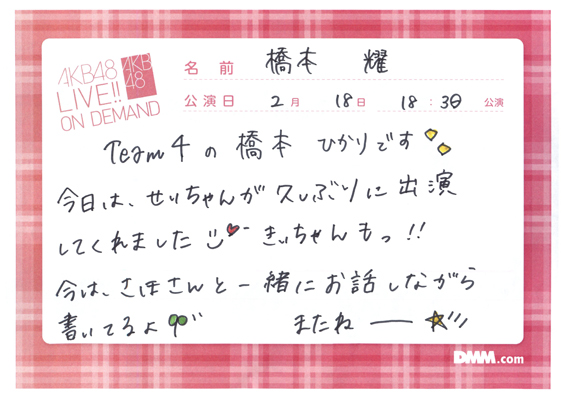 AKB48
LIVE!!
ON DEMAND
AKB
48
名前 橋本 耀
公演日 2月 18日 18:30 公演
Team 4 の 橋本 ひかりです
今日は、せいちゃんが久しぶりに出演
してくれました きぃちゃんもっ!!
今は、さほさんと一緒にお話しながら
書いてるよ
またねー
DMM.com